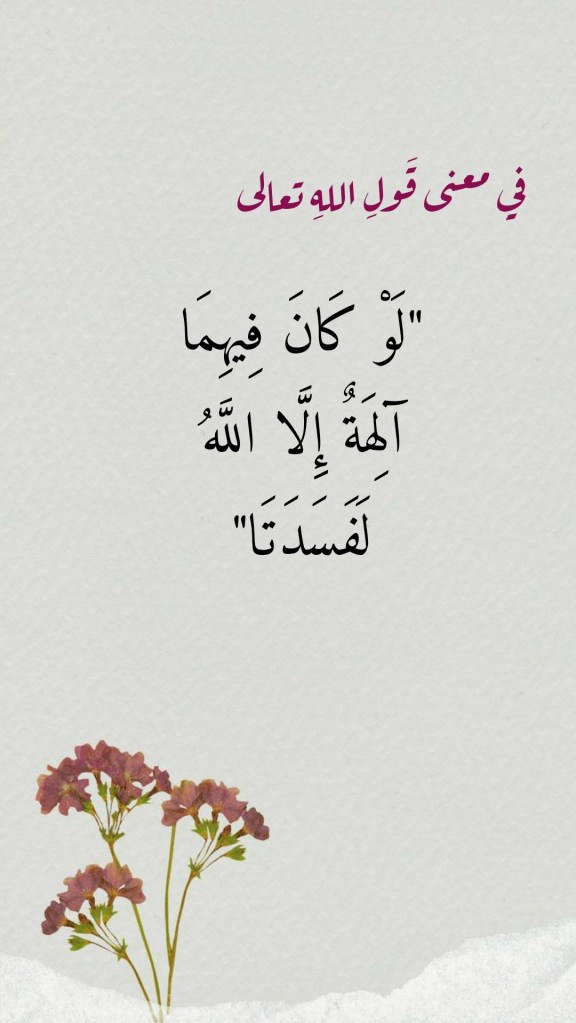 في معنى قَولِ اللهِ تعالى
"لَوْ كَانَ فِيهِمَا
آلِهَةٌ إِلَّا اللَّهُ
لَفَسَدَتَا"